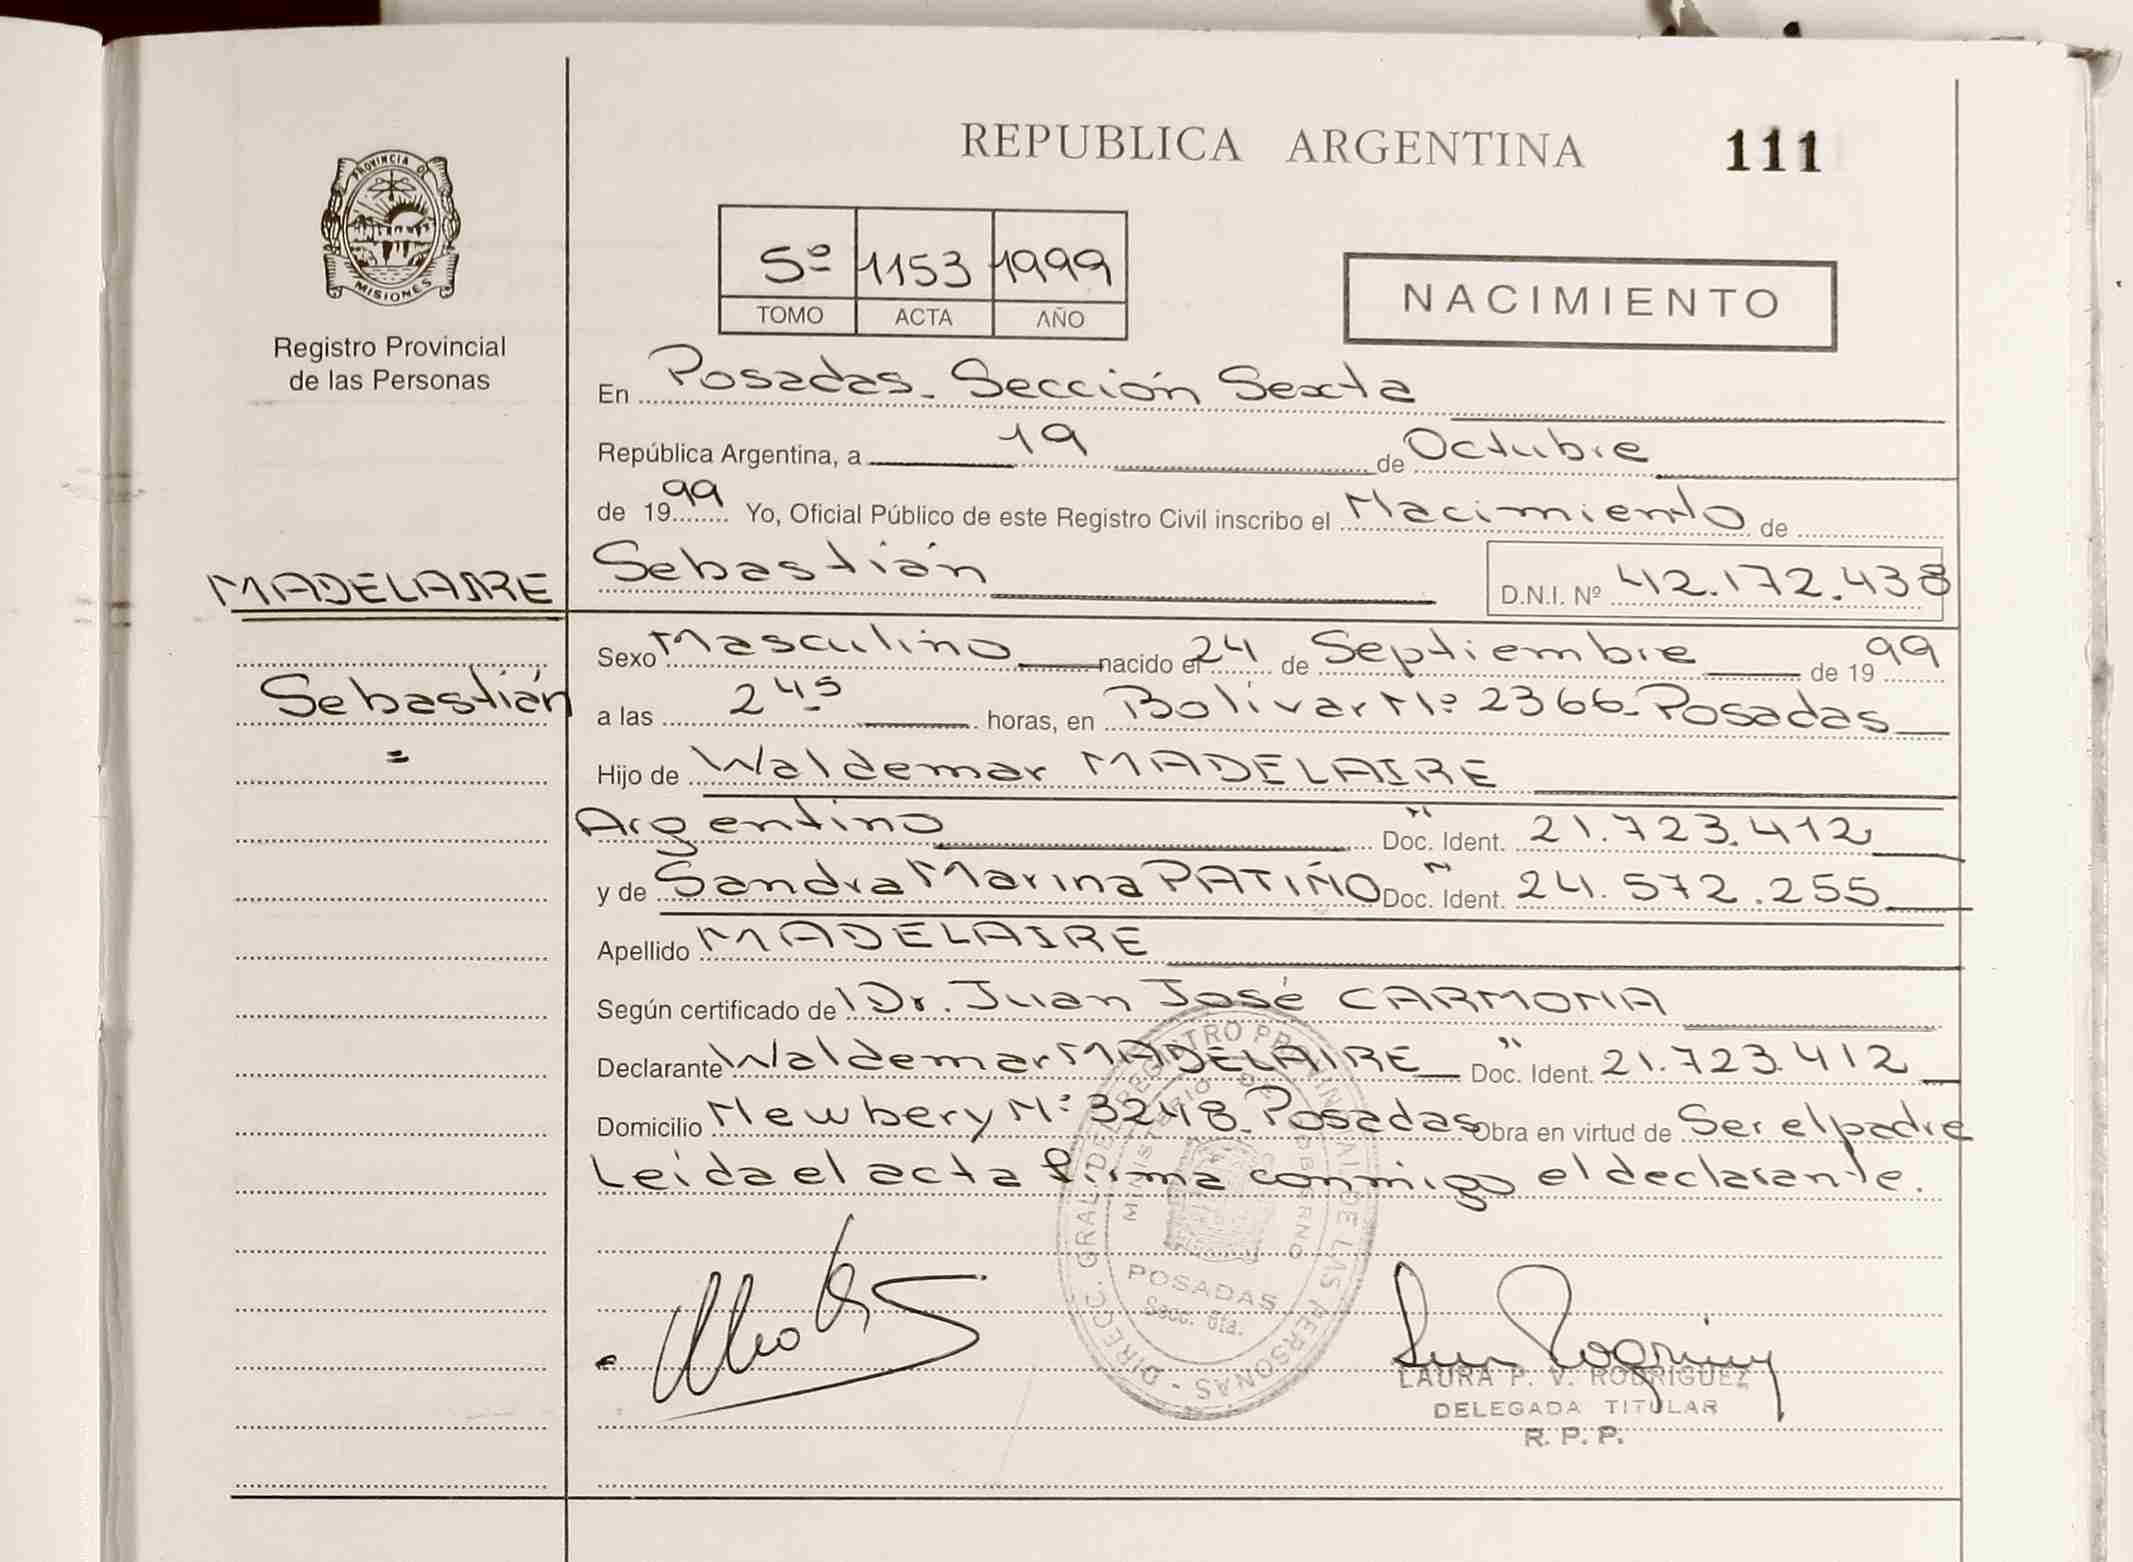 REPUBLICA ARGENTINA 111
PROVINCIA DE
MISIONES
Registro Provincial
de las Personas
5º 1153 1999
TOMO ACTA AÑO
NACIMIENTO
En Posadas - Sección Sexta
República Argentina, a 19 de Octubre
de 1999 Yo, Oficial Público de este Registro Civil inscribo el Nacimiento de
MADELAIRE Sebastián D.N.I. Nº 42.172.438
Sexo Masculino nacido el 24 de Septiembre de 1999
Sebastián a las 2 45 horas, en Bolívar Nº 2366 - Posadas
Hijo de Waldemar MADELAIRE
Argentino Doc. Ident. " 21.723.412
y de Sandra Marina PATIÑO Doc. Ident. " 24.572.255
Apellido MADELAIRE
Según certificado de Dr. Juan José CARMONA
Declarante Waldemar MADELAIRE Doc. Ident. " 21.723.412
Domicilio Newbery Nº 3248 - Posadas Obra en virtud de Ser el padre
Leída el acta firma conmigo el declarante.
DIRECC. GRAL. DEL REGISTRO PROVINCIAL DE LAS PERSONAS -
MINISTERIO DE GOBIERNO
POSADAS
Secc. 6ta.
LAURA P. V. RODRIGUEZ
DELEGADA TITULAR
R. P. P.